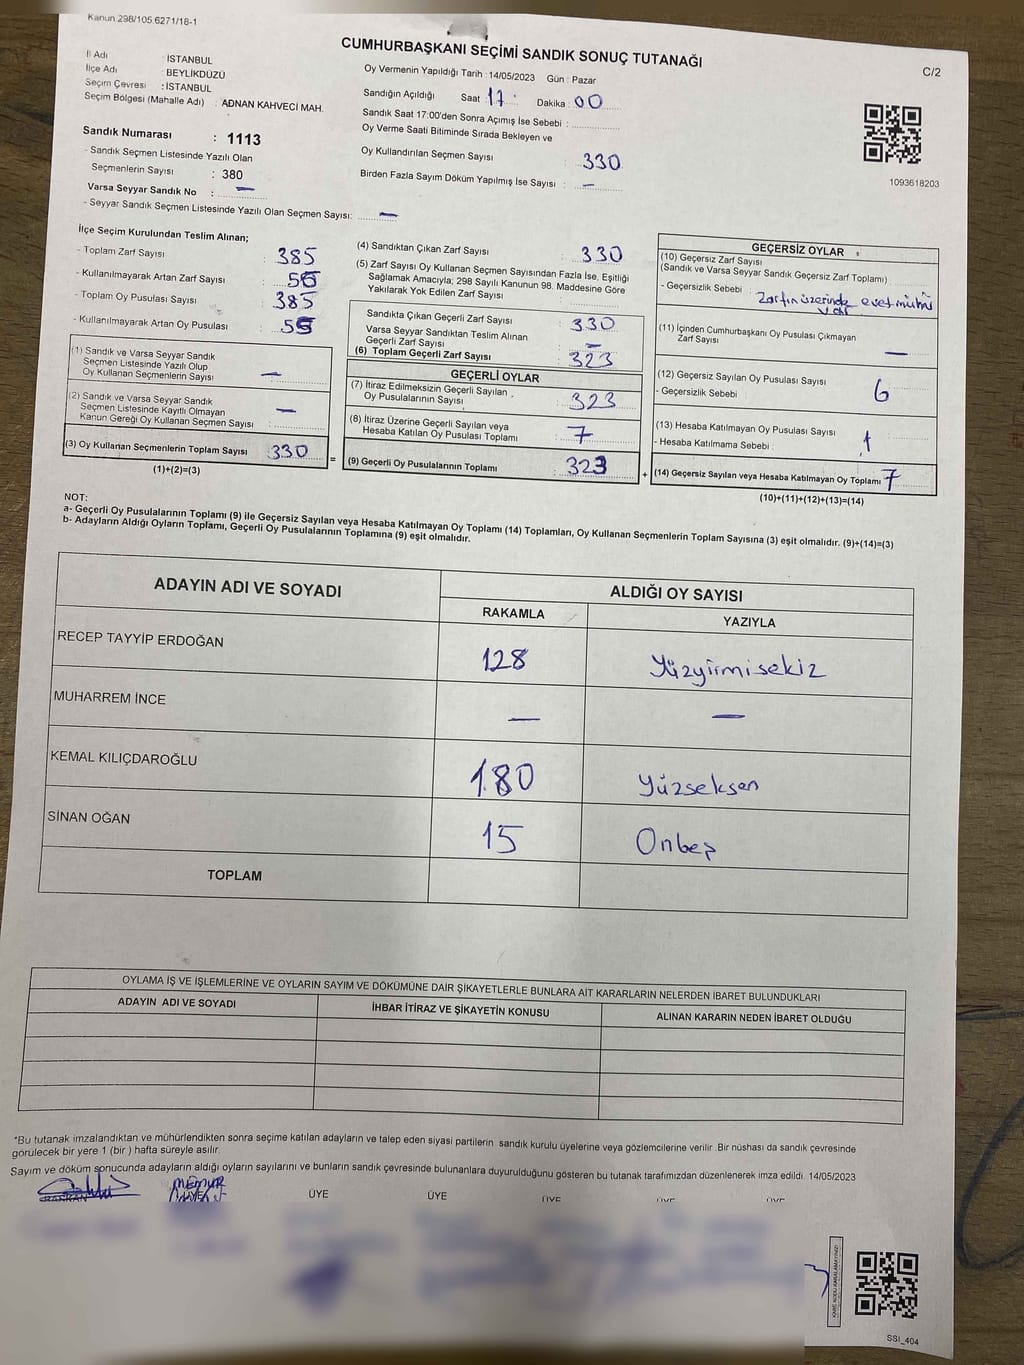 Kanun 298/105.6271/18-1
CUMHURBAŞKANI SEÇİMİ SANDIK SONUÇ TUTANAĞI
C/2
İl Adı : İSTANBUL
İlçe Adı : BEYLİKDÜZÜ
Seçim Çevresi : İSTANBUL
Seçim Bölgesi (Mahalle Adı) : ADNAN KAHVECİ MAH.
Oy Vermenin Yapıldığı Tarih : 14/05/2023 Gün : Pazar
Sandığın Açıldığı Saat 17 : Dakika : 00
Sandık Saat 17:00'den Sonra Açımış İse Sebebi :
Oy Verme Saati Bitiminde Sırada Bekleyen ve
Oy Kullandırılan Seçmen Sayısı : 330
Birden Fazla Sayım Döküm Yapılmış İse Sayısı : —
1093618203
Sandık Numarası : 1113
- Sandık Seçmen Listesinde Yazılı Olan
Seçmenlerin Sayısı : 380
Varsa Seyyar Sandık No : —
- Seyyar Sandık Seçmen Listesinde Yazılı Olan Seçmen Sayısı: —
İlçe Seçim Kurulundan Teslim Alınan;
- Toplam Zarf Sayısı : 385
- Kullanılmayarak Artan Zarf Sayısı : 55
- Toplam Oy Pusulası Sayısı : 385
- Kullanılmayarak Artan Oy Pusulası : 55
(1) Sandık ve Varsa Seyyar Sandık
Seçmen Listesinde Yazılı Olup
Oy Kullanan Seçmenlerin Sayısı : —
(2) Sandık ve Varsa Seyyar Sandık
Seçmen Listesinde Kayıtlı Olmayan
Kanun Gereği Oy Kullanan Seçmen Sayısı : —
(3) Oy Kullanan Seçmenlerin Toplam Sayısı : 330
(1)+(2)=(3)
(4) Sandıktan Çıkan Zarf Sayısı : 330
(5) Zarf Sayısı Oy Kullanan Seçmen Sayısından Fazla İse, Eşitliği
Sağlamak Amacıyla; 298 Sayılı Kanunun 98. Maddesine Göre
Yakılarak Yok Edilen Zarf Sayısı :
Sandıkta Çıkan Geçerli Zarf Sayısı : 330
Varsa Seyyar Sandıktan Teslim Alınan
Geçerli Zarf Sayısı : —
(6) Toplam Geçerli Zarf Sayısı : 323
GEÇERLİ OYLAR
(7) İtiraz Edilmeksizin Geçerli Sayılan
Oy Pusulalarının Sayısı : 323
(8) İtiraz Üzerine Geçerli Sayılan veya
Hesaba Katılan Oy Pusulası Toplamı : 7
(9) Geçerli Oy Pusulalarının Toplamı : 323
=
+
GEÇERSİZ OYLAR
(10) Geçersiz Zarf Sayısı
(Sandık ve Varsa Seyyar Sandık Geçersiz Zarf Toplamı) :
- Geçersizlik Sebebi : Zarfın üzerinde evet mührü var
(11) İçinden Cumhurbaşkanı Oy Pusulası Çıkmayan
Zarf Sayısı : —
(12) Geçersiz Sayılan Oy Pusulası Sayısı : 6
- Geçersizlik Sebebi :
(13) Hesaba Katılmayan Oy Pusulası Sayısı : 1
- Hesaba Katılmama Sebebi :
(14) Geçersiz Sayılan veya Hesaba Katılmayan Oy Toplamı 7
(10)+(11)+(12)+(13)=(14)
NOT:
a- Geçerli Oy Pusulalarının Toplamı (9) ile Geçersiz Sayılan veya Hesaba Katılmayan Oy Toplamı (14) Toplamları, Oy Kullanan Seçmenlerin Toplam Sayısına (3) eşit olmalıdır. (9)+(14)=(3)
b- Adayların Aldığı Oyların Toplamı, Geçerli Oy Pusulalarının Toplamına (9) eşit olmalıdır.
ADAYIN ADI VE SOYADI
ALDIĞI OY SAYISI
RAKAMLA YAZIYLA
RECEP TAYYİP ERDOĞAN 128 Yüzyirmisekiz
MUHARREM İNCE — —
KEMAL KILIÇDAROĞLU 180 Yüzseksen
SİNAN OĞAN 15 Onbeş
TOPLAM
OYLAMA İŞ VE İŞLEMLERİNE VE OYLARIN SAYIM VE DÖKÜMÜNE DAİR ŞİKAYETLERLE BUNLARA AİT KARARLARIN NELERDEN İBARET BULUNDUKLARI
ADAYIN ADI VE SOYADI İHBAR İTİRAZ VE ŞİKAYETİN KONUSU ALINAN KARARIN NEDEN İBARET OLDUĞU
*Bu tutanak imzalandıktan ve mühürlendikten sonra seçime katılan adayların ve talep eden siyasi partilerin sandık kurulu üyelerine veya gözlemcilerine verilir. Bir nüshası da sandık çevresinde
görülecek bir yere 1 (bir ) hafta süreyle asılır.
Sayım ve döküm sonucunda adayların aldığı oyların sayılarını ve bunların sandık çevresinde bulunanlara duyurulduğunu gösteren bu tutanak tarafımızdan düzenlenerek imza edildi. 14/05/2023
BAŞKAN MEMUR ÜYE ÜYE ÜYE ÜYE ÜYE ÜYE
SSI_404